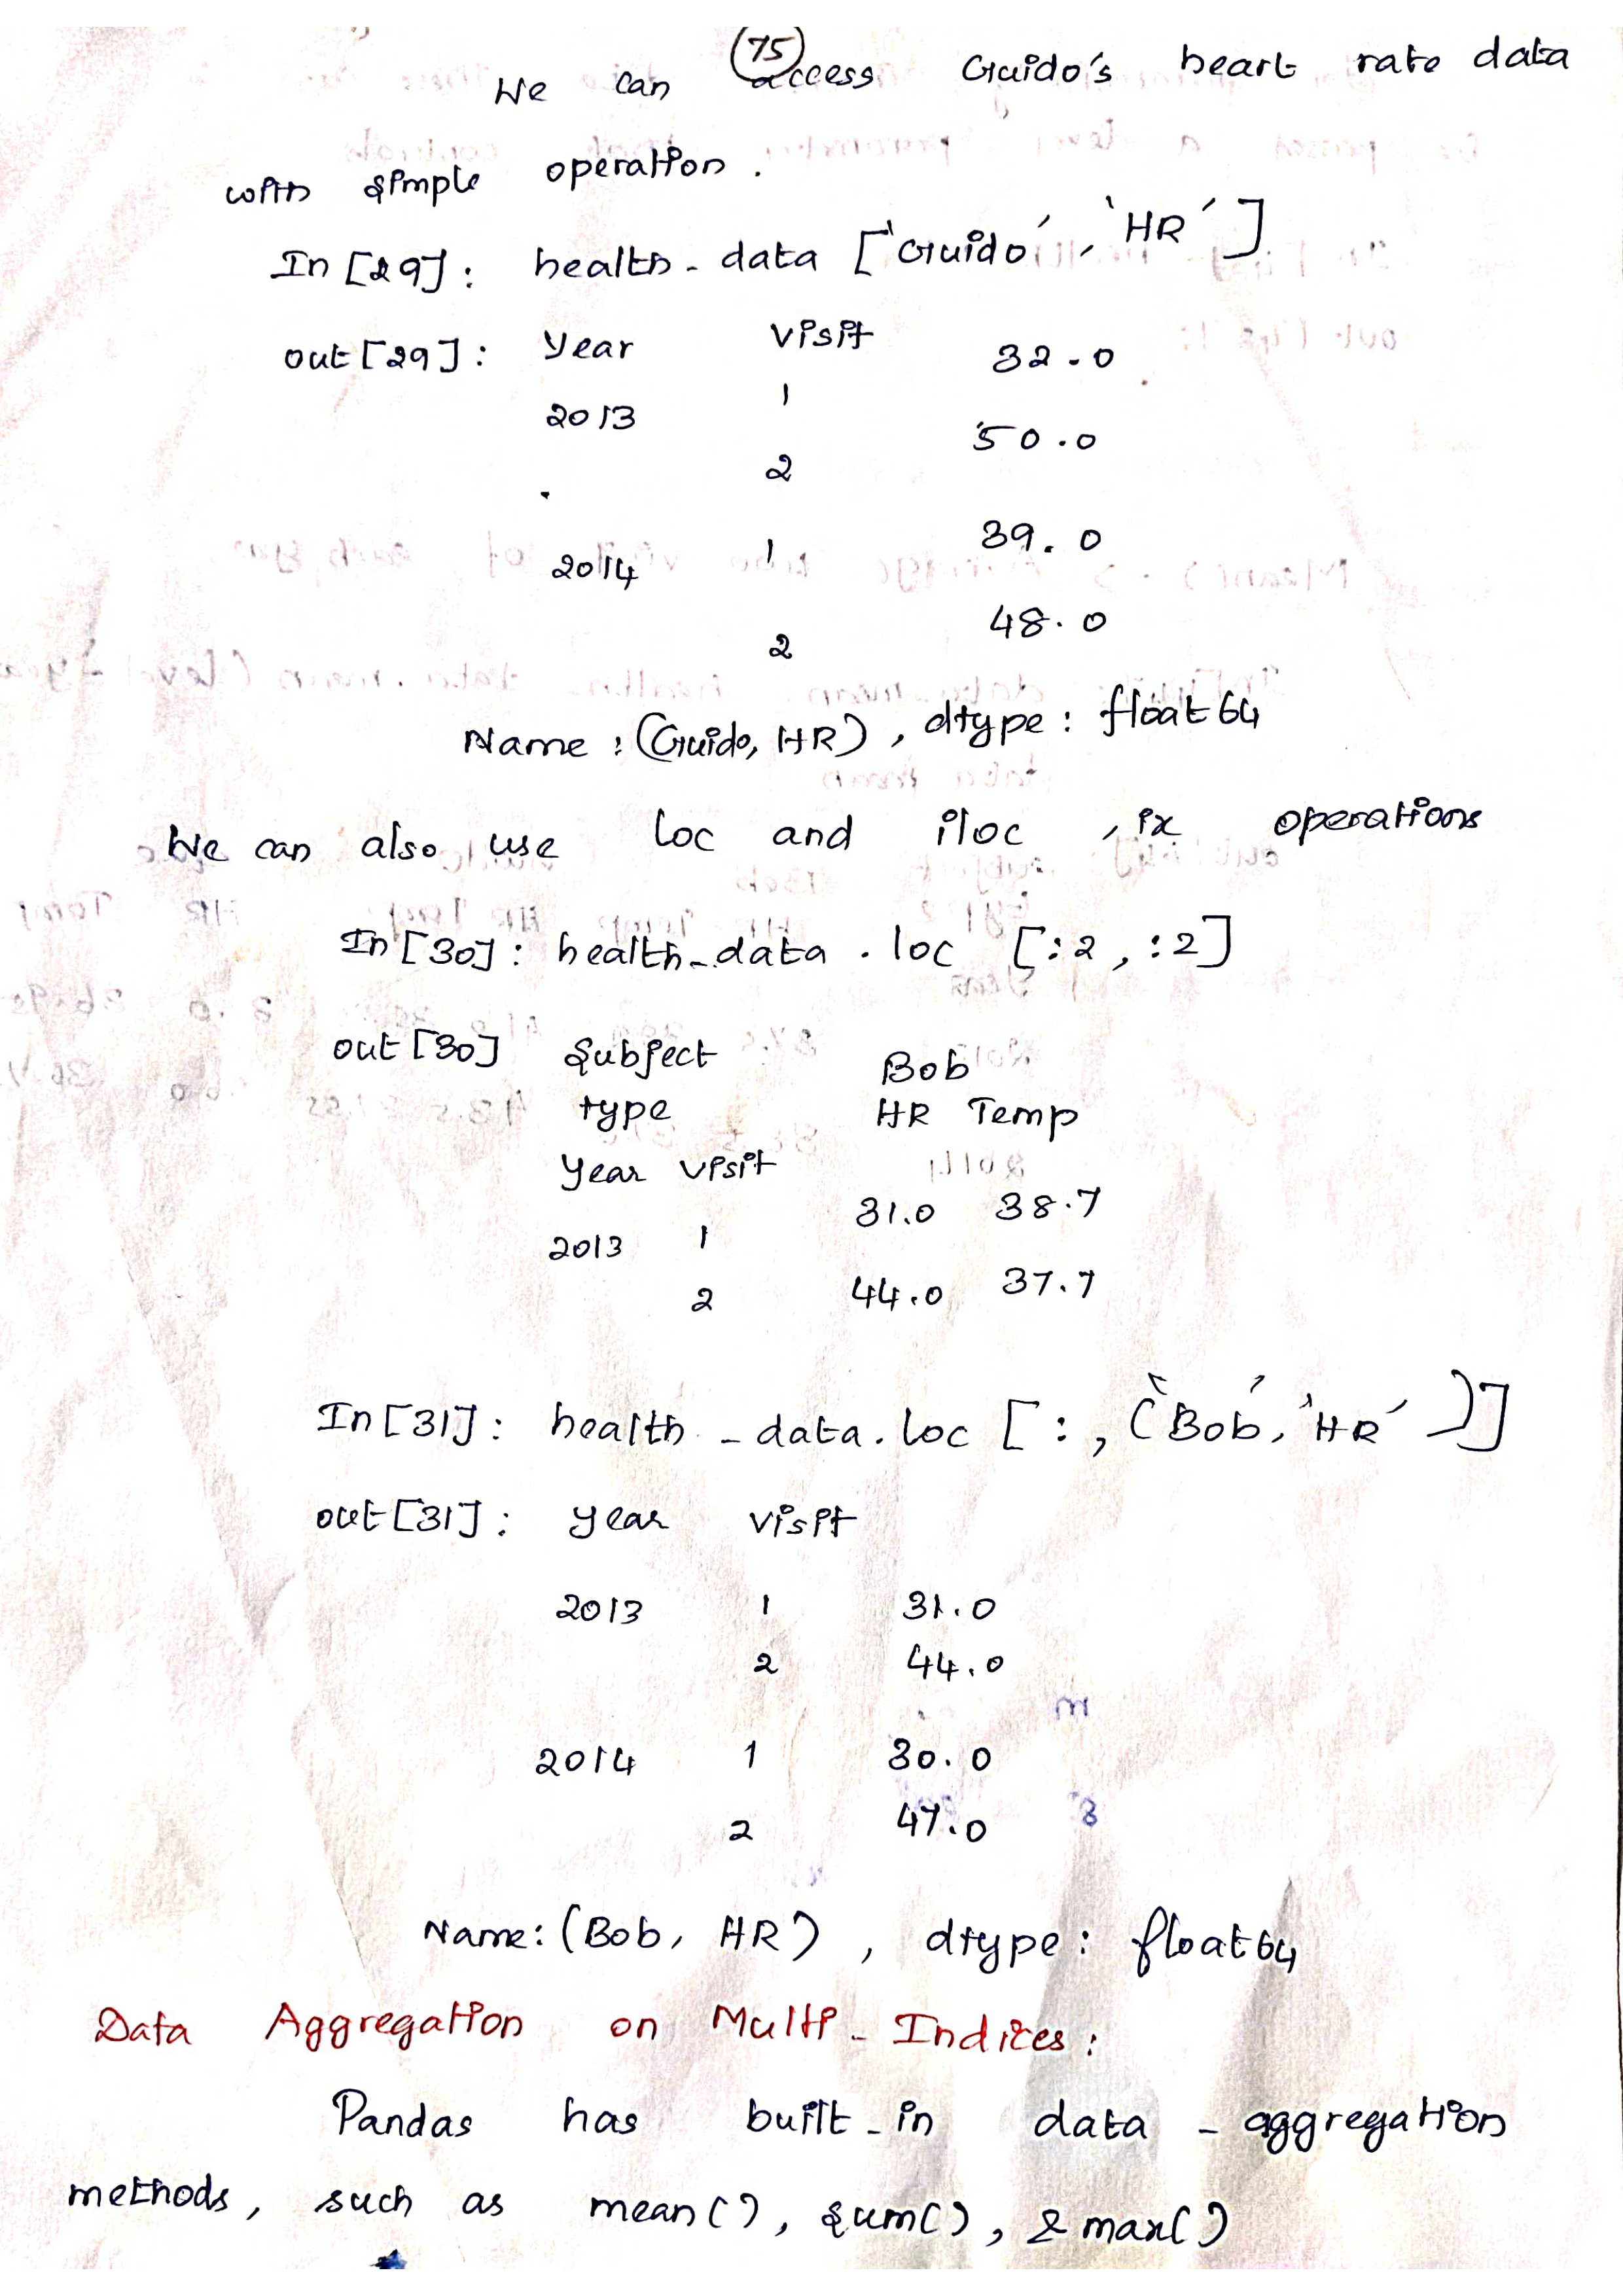 75
We can access Guido's heart rate data
with simple operation.
In [29]: health_data ['Guido', 'HR']
out [29]: Year visit
2013 1 32.0
2 50.0
2014 1 39.0
2 48.0
Name: (Guido, HR), dtype: float64
We can also use loc and iloc, ix operations
In [30]: health_data.loc [:2, :2]
out [30] Subject Bob
type HR Temp
Year visit
2013 1 31.0 38.7
2 44.0 37.7
In [31]: health_data.loc [:, ('Bob', 'HR')]
out [31]: year visit
2013 1 31.0
2 44.0
2014 1 30.0
2 47.0
Name: (Bob, HR), dtype: float64
Data Aggregation on Multi-Indices:
Pandas has built-in data-aggregation
methods, such as mean(), sum(), & max()